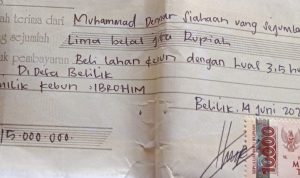 terima dari Muhammad Denar Siahaan uang sejumla
ng sejumlah Lima belas juta Rupiah
k pembayaran Beli lahan kebun dengan luas 3,5 h
Di Desa Belilik
milik kebun : IBROHIM
Belilik, 14 Juni 20
15.000.000
10000